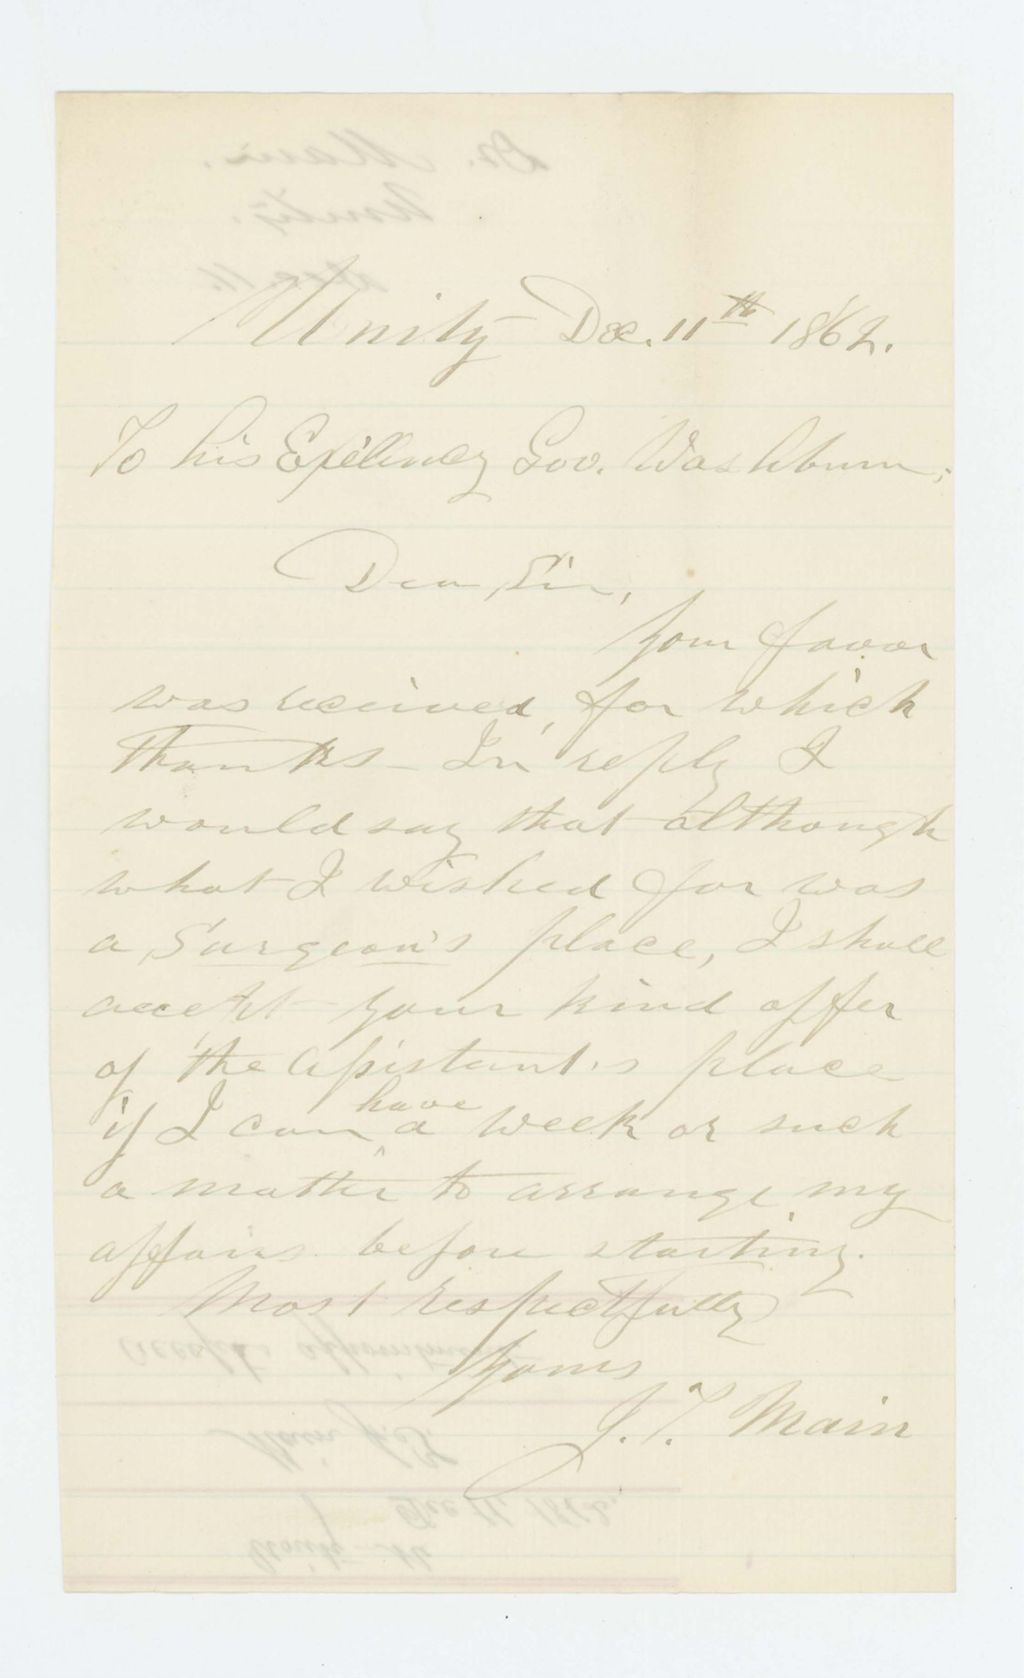 Unity Dec. 11th 1862.
To his Excellency Gov. Washburn;
Dear Sir,
Your favor
was received, for which
thanks - In reply I
would say that although
what I wished for was
a Surgeon's place, I shall
accept your kind offer
of the Assistant's place
if I can have a week or such
a matter to arrange my
affairs before starting.
Most respectfully
yours
J. T. Main